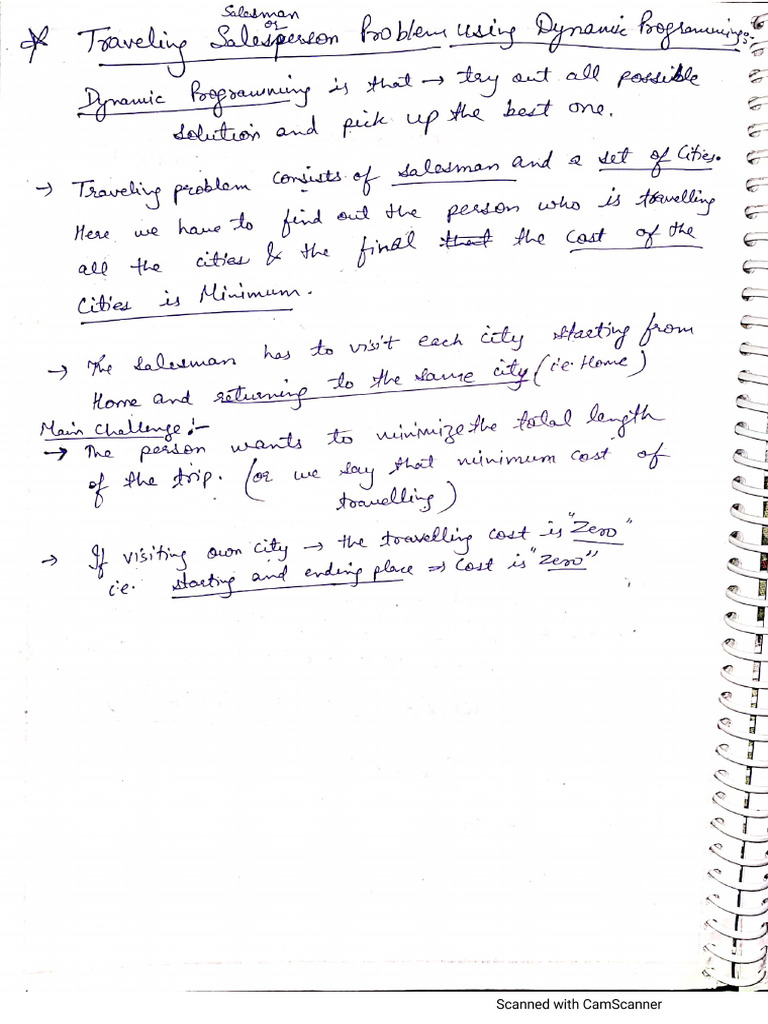 Salesman
or
* Traveling Salesperson Problem using Dynamic Programming:
Dynamic Programming is that → try out all possible
solution and pick up the best one.
→ Traveling problem consists of salesman and a set of Cities.
Here we have to find out the person who is travelling
all the cities & the final that the cost of the
Cities is Minimum.
→ The salesman has to visit each city starting from
Home and returning to the same city (i.e. Home)
Main Challenge:-
→ The person wants to minimize the total length
of the trip. (or we say that minimum cost of
travelling)
→ If visiting own city → the travelling cost is "Zero"
i.e. starting and ending place ⇒ Cost is "Zero"
Scanned with CamScanner